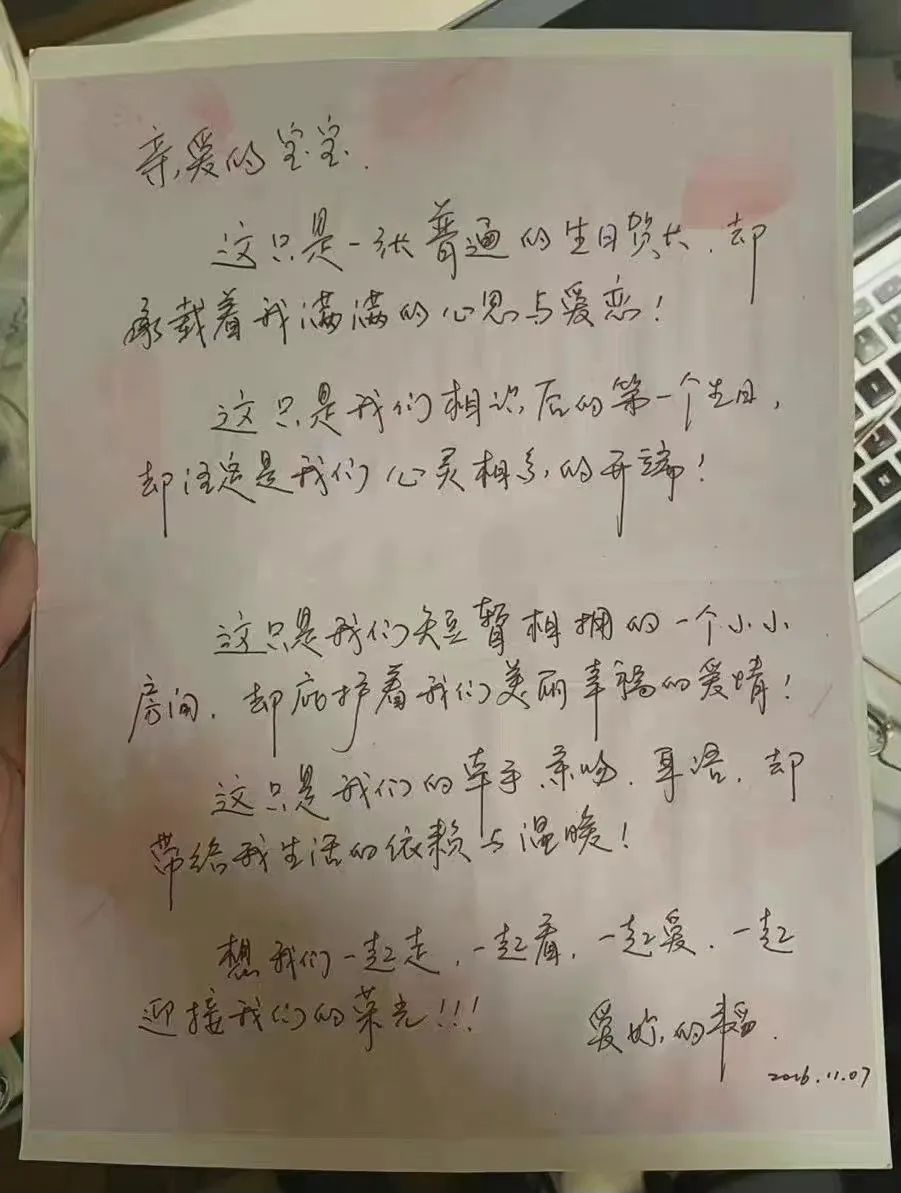 亲爱的宝宝.
这只是一张普通的生日贺卡,却
承载着我满满的心思与爱恋!
这只是我们相识后的第一个生日,
却注定是我们心灵相系的开端!
这只是我们短暂相拥的一个小小
房间,却庇护着我们美丽幸福的爱情!
这只是我们的牵手.亲吻.耳语,却
带给我生活的依赖与温暖!
想我们一起走,一起看,一起爱,一起
迎接我们的荣光!!!
爱你的
2016.11.07